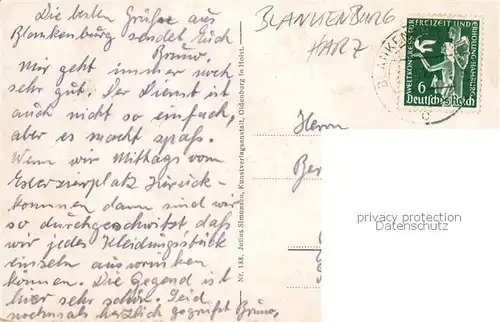 Die besten Grüße aus
Blankenburg sendet Euch
Bruno.
Mir geht immer noch
sehr gut. Der Dienst ist
auch nicht so einfach,
aber es macht spaß.
Wenn wir Mittags vom
Exerzierplatz zurück-
kommen dann sind wir
so durchgeschwitzt daß
wir jedes Kleidungsstück
einzeln auswringen
können. Die Gegend ist
hier sehr schön. Seid
nochmals herzlich gegrüßt Bruno.
Nr. 188. Julius Simonsen, Kunstverlagsanstalt, Oldenburg in Holst.
BLANKENBURG
HARZ
WELTKONGRESS FÜR FREIZEIT UND ERHOLUNG HAMBURG
6
Deutsches Reich
BLANKEN
Herrn
Ber
privacy protection
Datenschutz